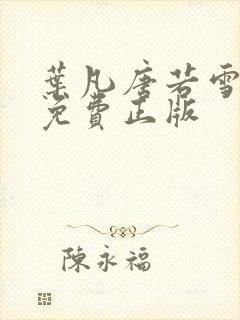 葉凡唐若雪
免費正版
陳永福